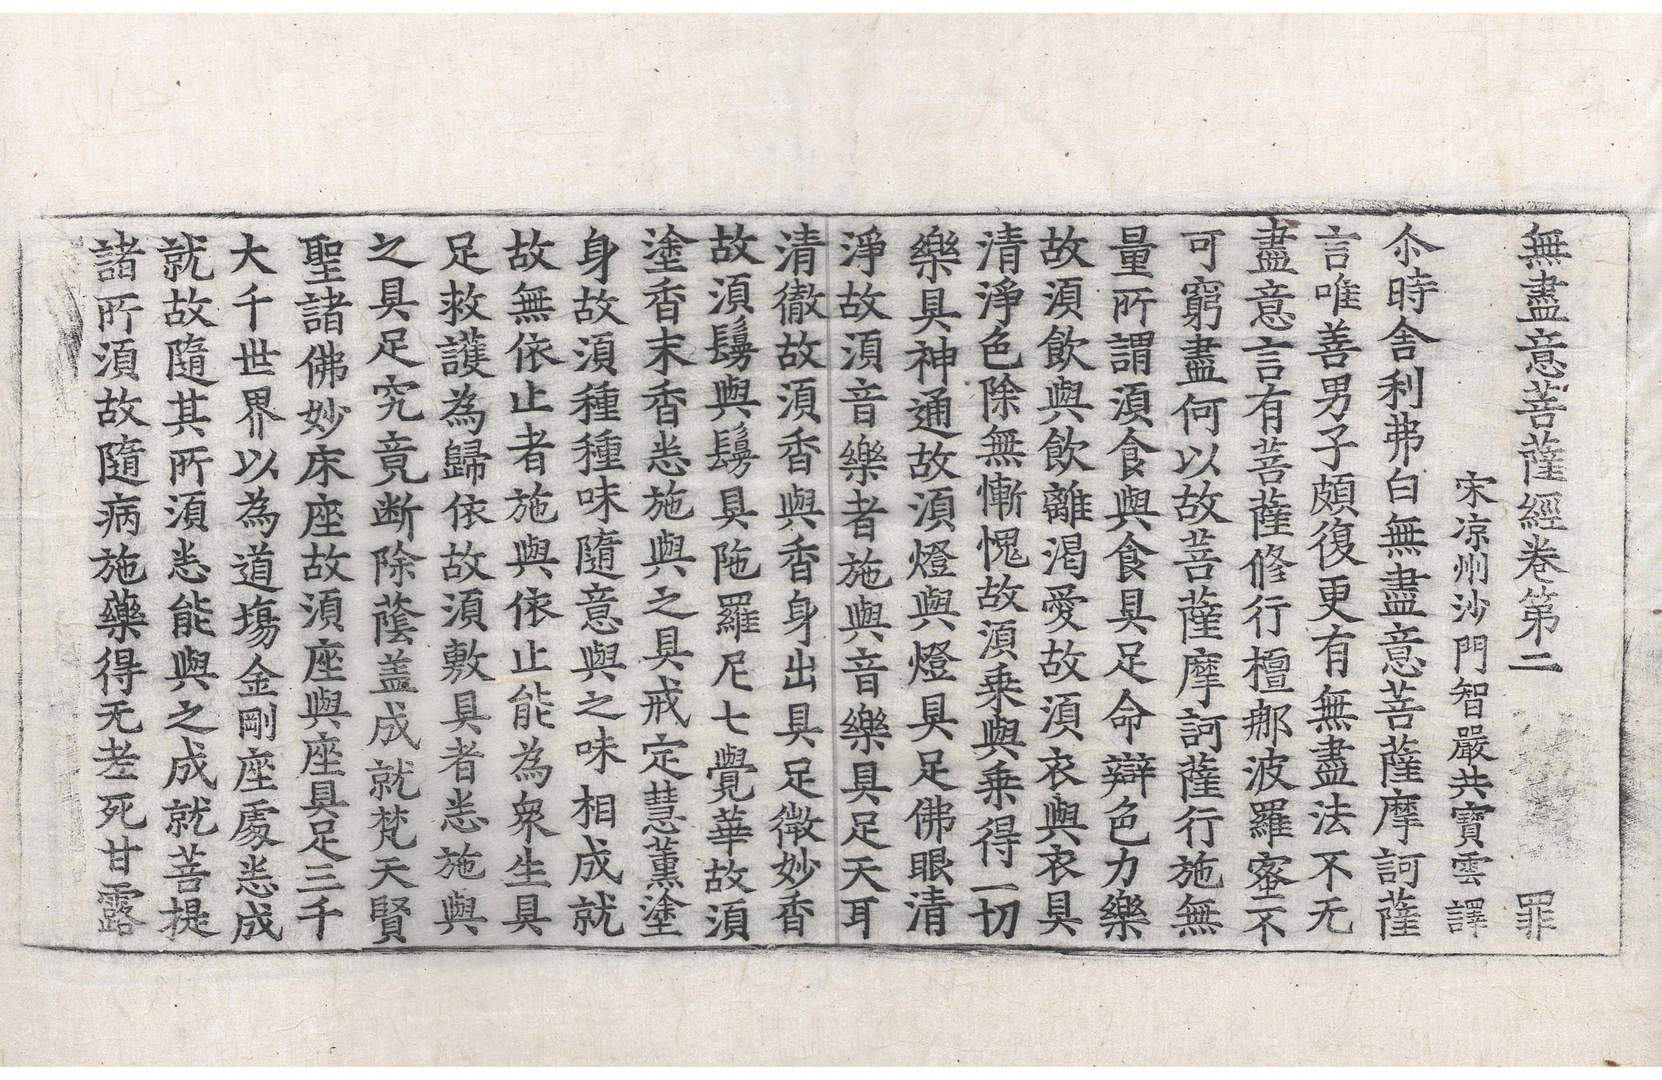 無盡意菩薩經卷第二 罪
宋凉州沙門智嚴共寶雲譯
尒時舎利弗白無盡意菩薩摩訶薩
言唯善男子頗復更有無盡法不无
盡意言有菩薩修行檀那波羅蜜不
可窮盡何以故菩薩摩訶薩行施無
量所謂須食與食具足命辯色力樂
故須飲與飲離渴愛故須衣與衣具
清淨色除無慚愧故須乗與乗得一切
樂具神通故須燈與燈具足佛眼清
淨故須音樂者施與音樂具足天耳
清徹故須香與香身出具足微妙香
故須鬘與鬘具陁羅尼七覺華故須
塗香末香悉施與之具戒定慧薫塗
身故須種種味隨意與之味相成就
故無依止者施與依止能為衆生具
足救護為歸依故須敷具者悉施與
之具足究竟断除蔭盖成就梵天賢
聖諸佛妙床座故須座與座具足三千
大千世界以為道塲金剛座處悉成
就故隨其所須悉能與之成就菩提
諸所須故隨病施藥得无老死甘露